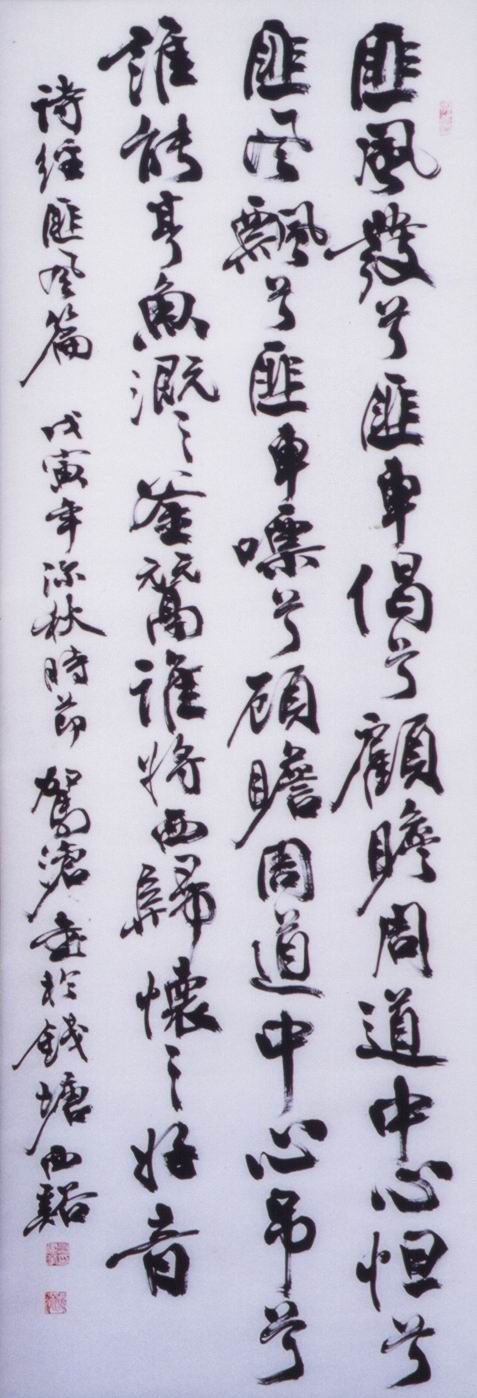 匪風發兮匪車偈兮顧瞻周道中心怛兮
匪风飄兮匪車嘌兮顾瞻周道中心吊兮
誰能亨魚溉之釜鬵誰將西歸懷之好音
诗经匪风篇 戊寅年深秋時節 駕滄書於錢塘西谿